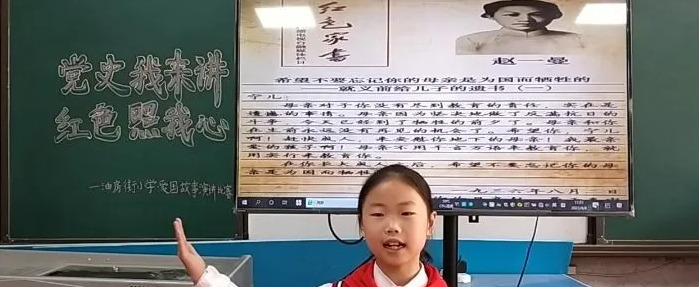 党史我来讲
红色照我心
红色家书
赵一曼
希望不要忘记你的母亲是为国而牺牲的
——就义前给儿子的遗书（一）
宁儿：
母亲对于你没有尽到教育的责任，实在是
遗憾的事情。母亲因为坚决地做了反满抗日的
斗争，今天已经到了牺牲的前夕了。母亲和你
在生前永远没有再见的机会了。希望你，宁儿
啊！赶快成人，来安慰你地下的母亲！我最亲
爱的孩子啊！母亲不用千言万语来教育你，就
用实行来教育你。
在你长大成人之后，希望不要忘记你的母
亲是为国而牺牲
一九三六年八月